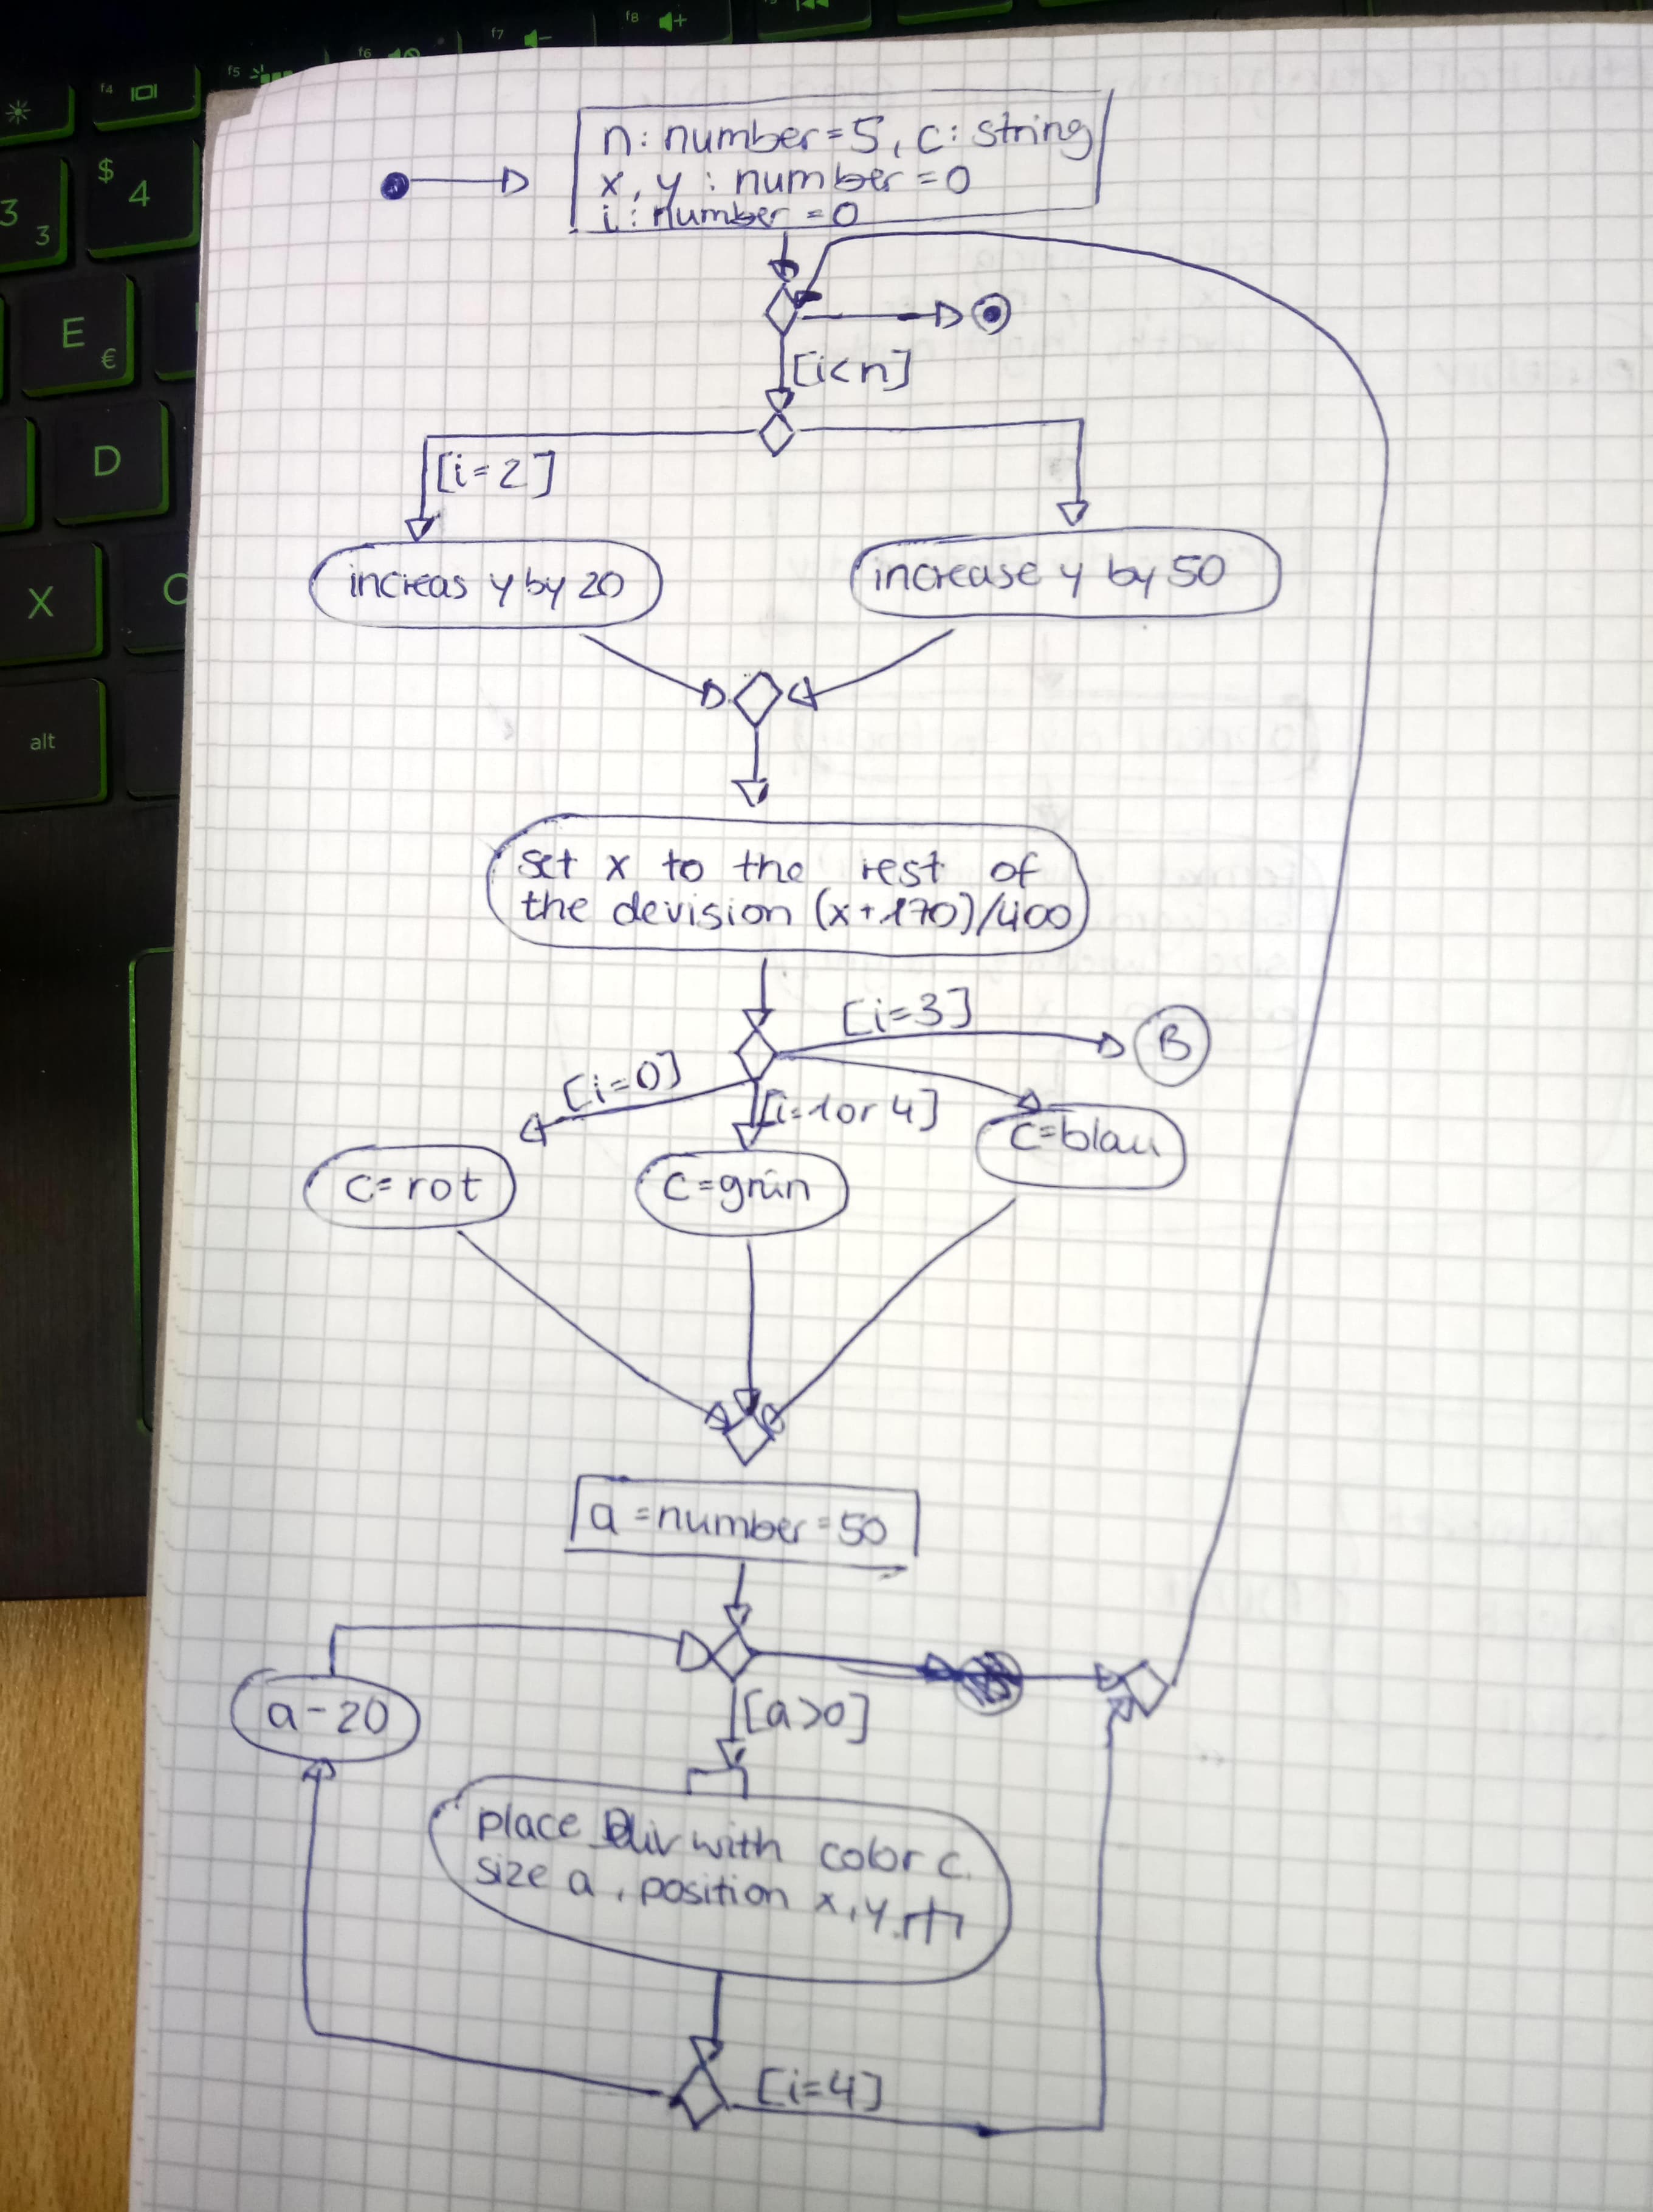 f5
f6
f7
f8
f4
$
4
3
3
E
€
D
X
C
alt
n: number=5, c: string
x, y : number =0
i : number =0
[i<n]
[i=2]
increas y by 20
increase y by 50
set x to the rest of
the devision (x+170)/400
[i=3]
B
[i=0]
[i=1or 4]
c=blau
c=rot
c=grün
a =number=50
a-20
[a>0]
place Div with color c.
size a, position x,y.
[i=4]